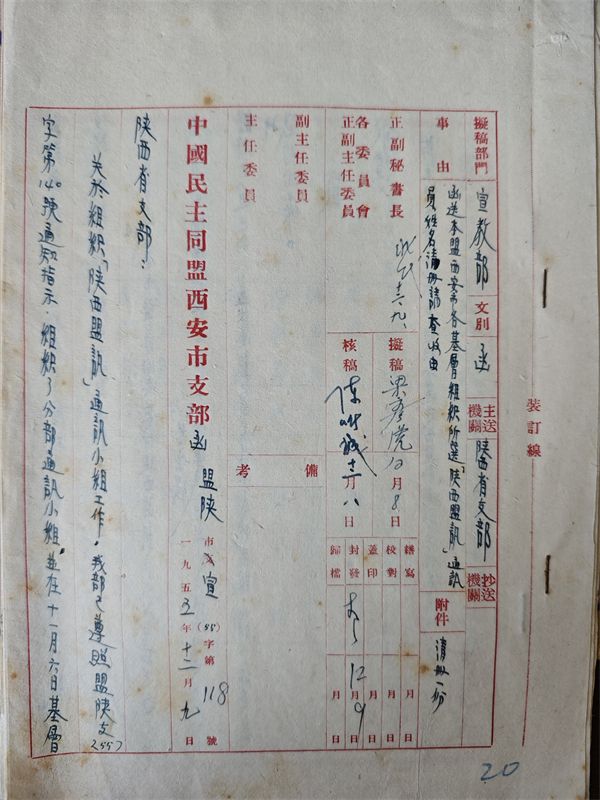 裝訂線
擬稿部門 宣教部 文別 函 主送機關 陕西省支部 抄送機關
事由 函送本盟西安市各基層组织所选「陕西盟訊」通訊員姓名清册請查收由 附件 清册一份
正副秘書長 十二、九、
擬稿 12月8日
繕寫 月 日
校對 月 日
各委員會正副主任委員
核稿 十二月八日
蓋印 月 日
封發 12月9日
歸檔 月 日
副主任委員
主任委員
備考
中國民主同盟西安市支部函 盟陕市宣(55)字第118號
一九五五年十二月九日
陕西省支部：
关於组织「陕西盟訊」通訊小组工作，我部已遵照盟陕支(55)
字第140號通知指示，组织了分部通訊小组，並在十一月六日基層
20